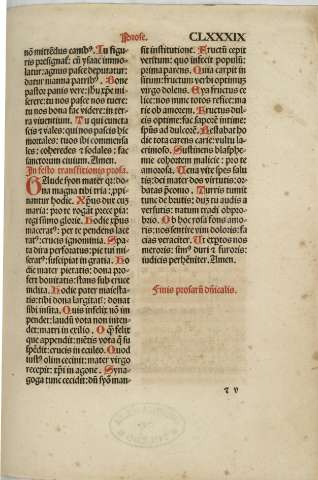 Prose. CLXXXIX
nō mittēdus canibꝰ. In figu
ris presignaꞇ: cū ysaac immo
latur: agnus pasce deputatur:
datur manna patribꝰ. Bone
pastor panis vere: ihu xp̄e mi
serere: tu nos pasce nos tuere:
tu nos bona fac videre: in ter
ra viuentium. Tu qui cuncta
scis ⁊ vales: qui nos pascis hic
mortales: tuos ibi commensa
les: coheredes ⁊ sodales: fac
sanctorum ciuium. Amen.
In festo transfixionis prosa.
Gaude syon mater
na magna tibi tria:
nantur hodie. Xp̄us dux
maria: pro te rogat prece pia:
regi summo glorie. Hodie xp̄us
maceratꝰ: per te pendens lace
ratꝰ: crucis ignominia. Spa
ta dira perforatus: pie tui mi
seratꝰ: suscipiat in gratia. Ho
die mater pietatis: dona pro
fert bonitatis: stans sub cruce
inclita. Hodie pater maiesta
tis: tibi dona largitaꞇ: donat
tibi insita. Quis infelix nō im
pendet: laudū vota non inten
det: matri in exilio. O q̄ felix
que appendit: mētis vota q̄ su
spēdit: crucis in eculeo. Quod
iustꝰ olim cecinit: mater virgo
recepit: xp̄i in agone. Syna
goga tunc cecidit: dū syon man
sit institutione. Fructū cepit
versutum: quo infecit populū:
prima parens. Quia carpit in
situm: fructum verbi optimum:
virgo dolens. Eya fructus ce
lice: nos nunc totos refice: ma
trie ob amorem. Fructus dul
cis optime: fac sapore intime:
spūs ad dulcorē. Restabat ho
die tota carens carie: vultu la
crimoso. Sustinens blasphe
mie cohortem malicie: pro te
amoroso. Uena vite spes salu
tis: dei mater dos virtutis: or
batas geonio. Turris
tunc de brutis: dux a diuersis
versutis: natum tradi obpro
brio. Ob hoc rosa fons amo
ris: nos sentire vim doloris: fa
cias veraciter. Ut exptos nos
meroris: sim duri ⁊ furoris:
iudicis perhēniter. Amen.
Finis prosarū dn̄icalis.
ꞇ v